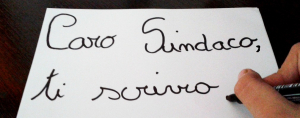 Caro Sindaco,
ti scrivo